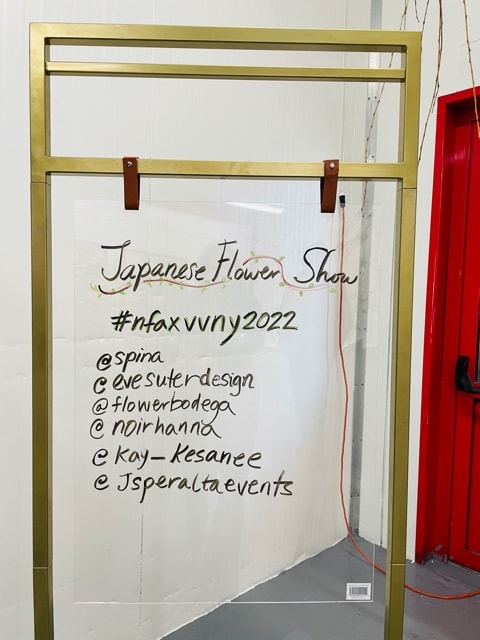 Japanese Flower Show
#nfaxvvny2022
@spina
@evesuterdesign
@flowerbodega
@noirhanna
@kay_kesanee
@Jsperaltaevents